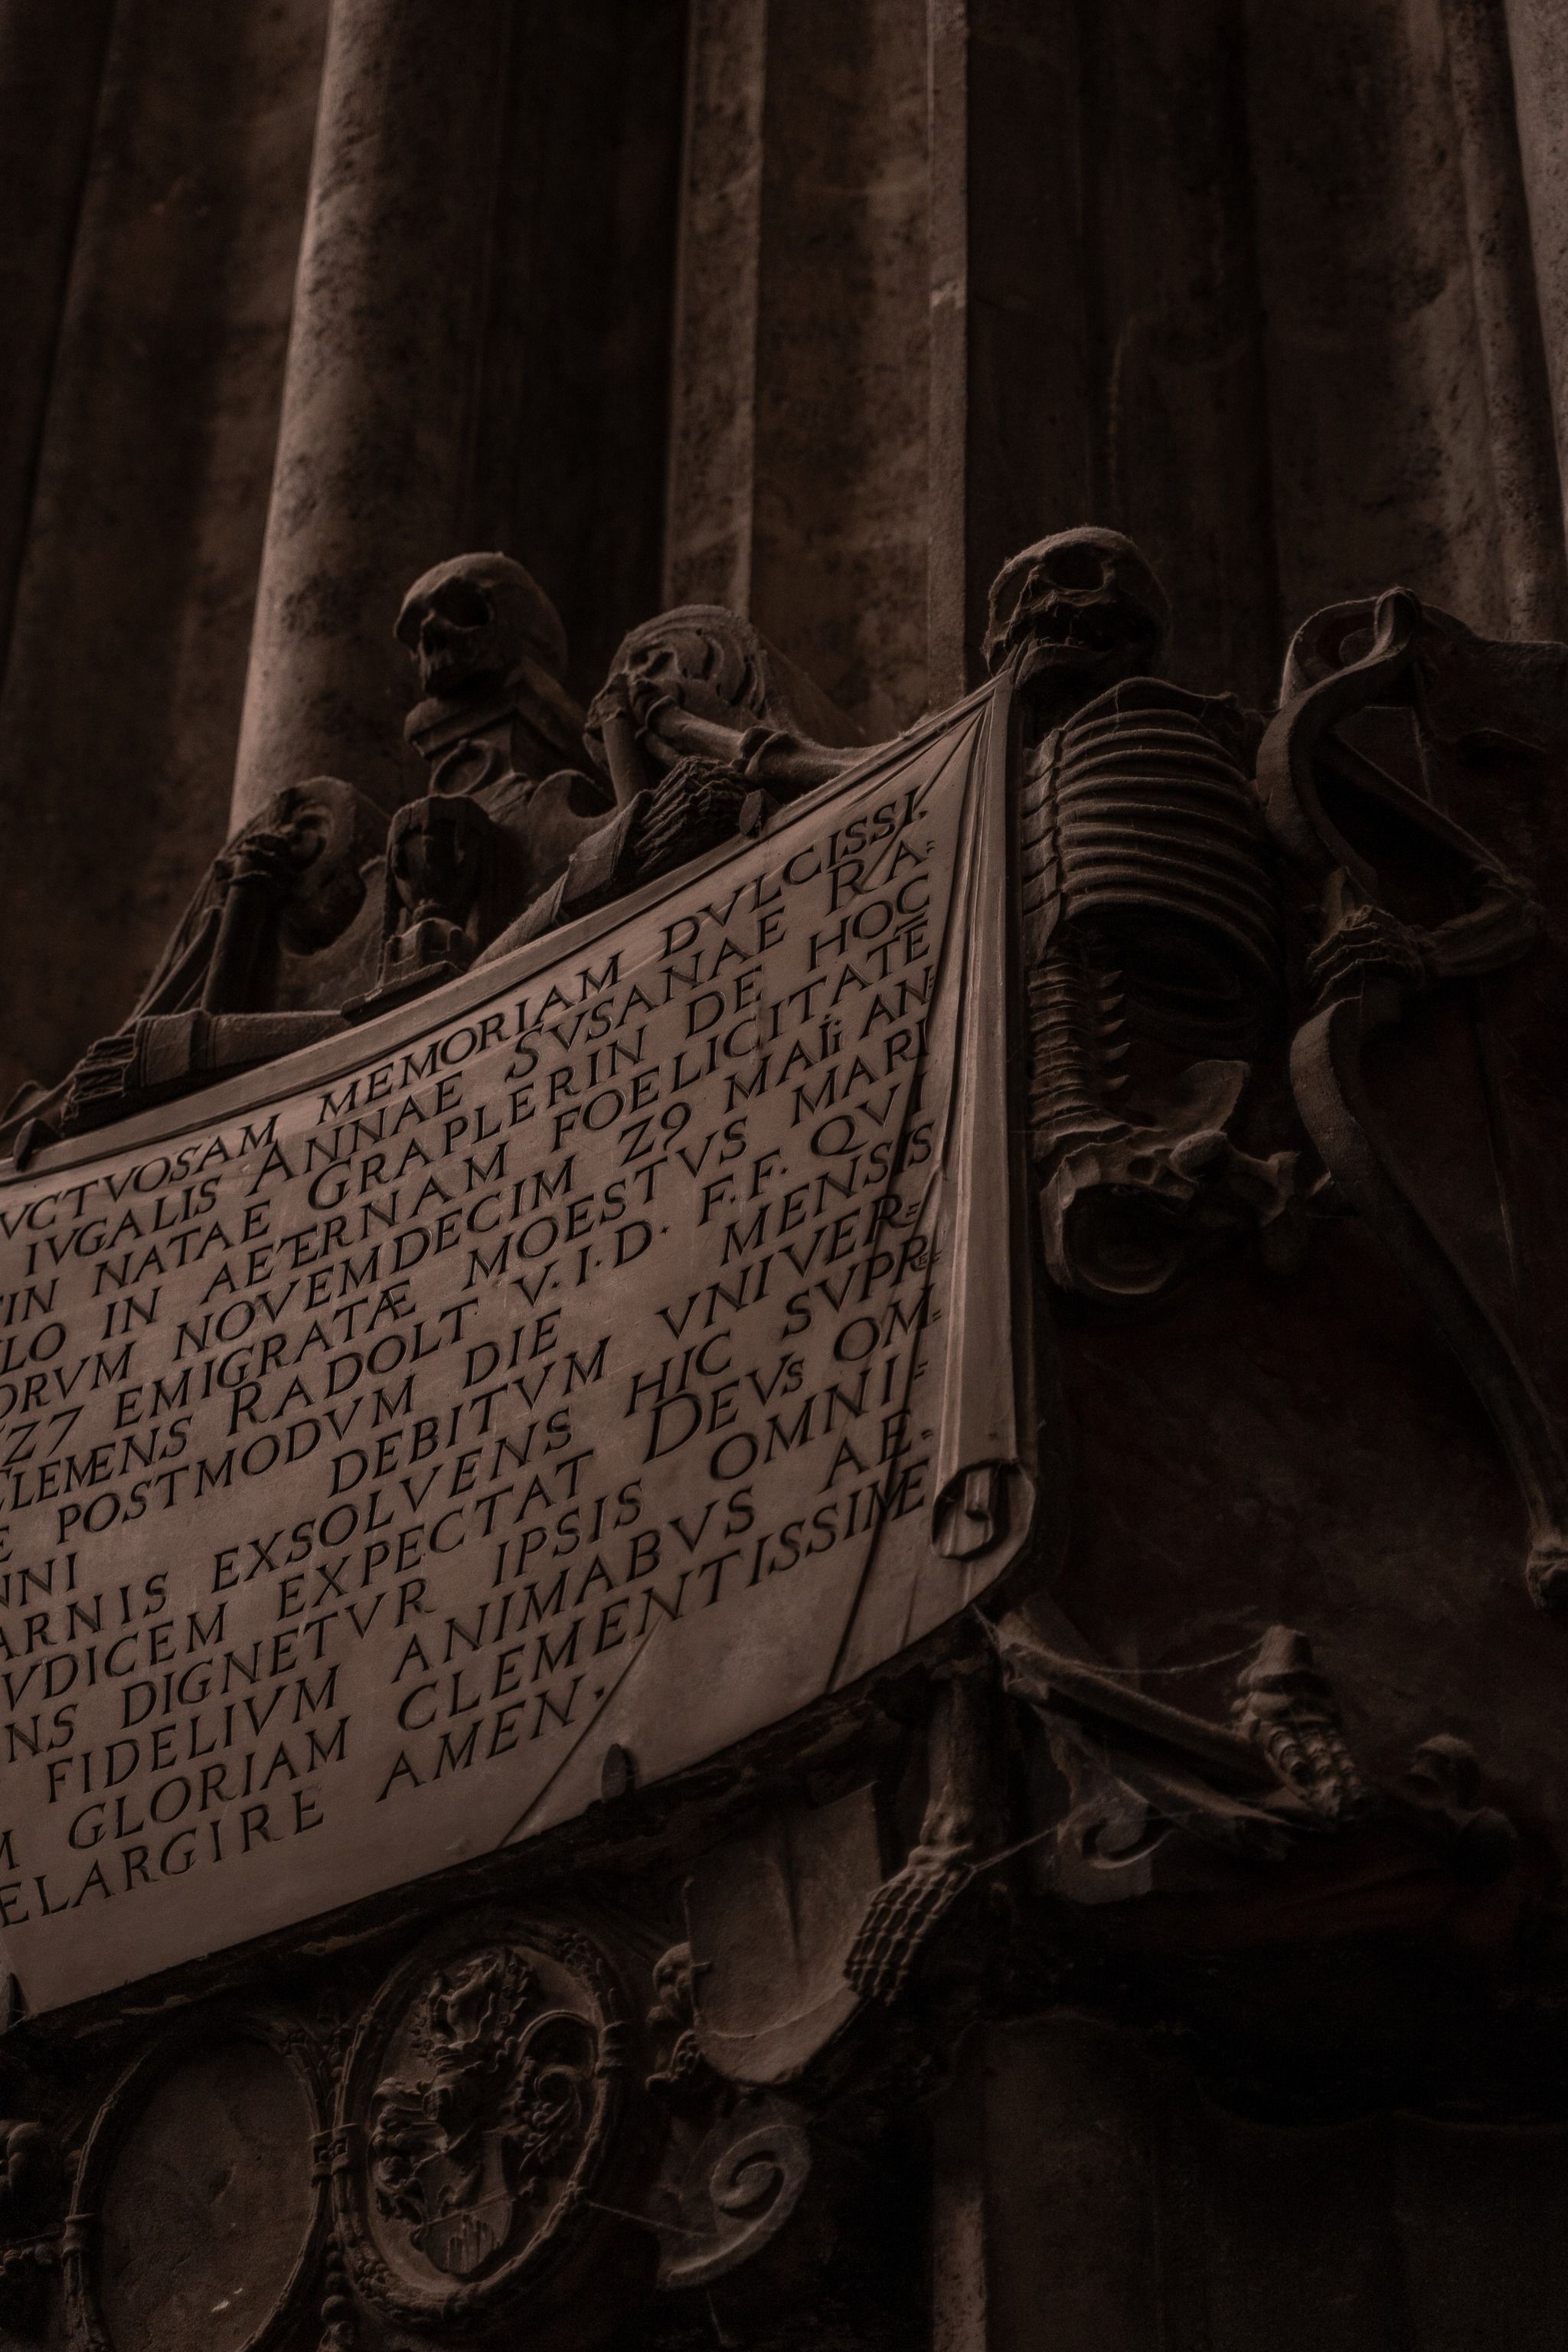 VCTVOSAM MEMORIAM DVLCISSI.
IVGALIS ANNAE SVSANAE RA=
IN NATAE GRAPLERIN DE HOC
LO IN AETERNAM FOELICITATĒ
ORVM NOVEMDECIM Z9 MAIi AN=
Z7 EMIGRATÆ MOESTVS MARI
CLEMENS RADOLT V.I.D. F.F. QVI
E POSTMODVM DIE MENSIS
NNI DEBITVM VNIVER=
ARNIS EXSOLVENS HIC SVPR=
VDICEM EXPECTAT DEVS OM=
NS DIGNETVR IPSIS OMNI=
FIDELIVM ANIMABVS AE=
M GLORIAM CLEMENTISSIME
ELARGIRE AMEN.